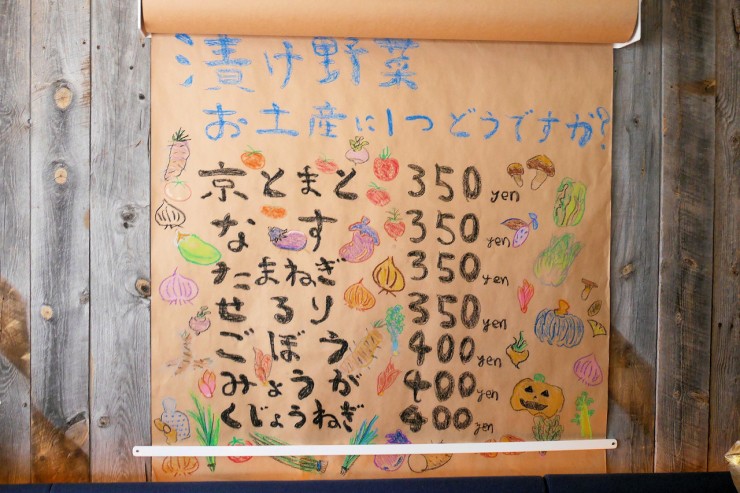 漬け野菜
お土産に1つどうですか?
京とまと 350 yen
なす 350 yen
たまねぎ 350 yen
せるり 350 yen
ごぼう 400 yen
みょうが 400 yen
くじょうねぎ 400 yen